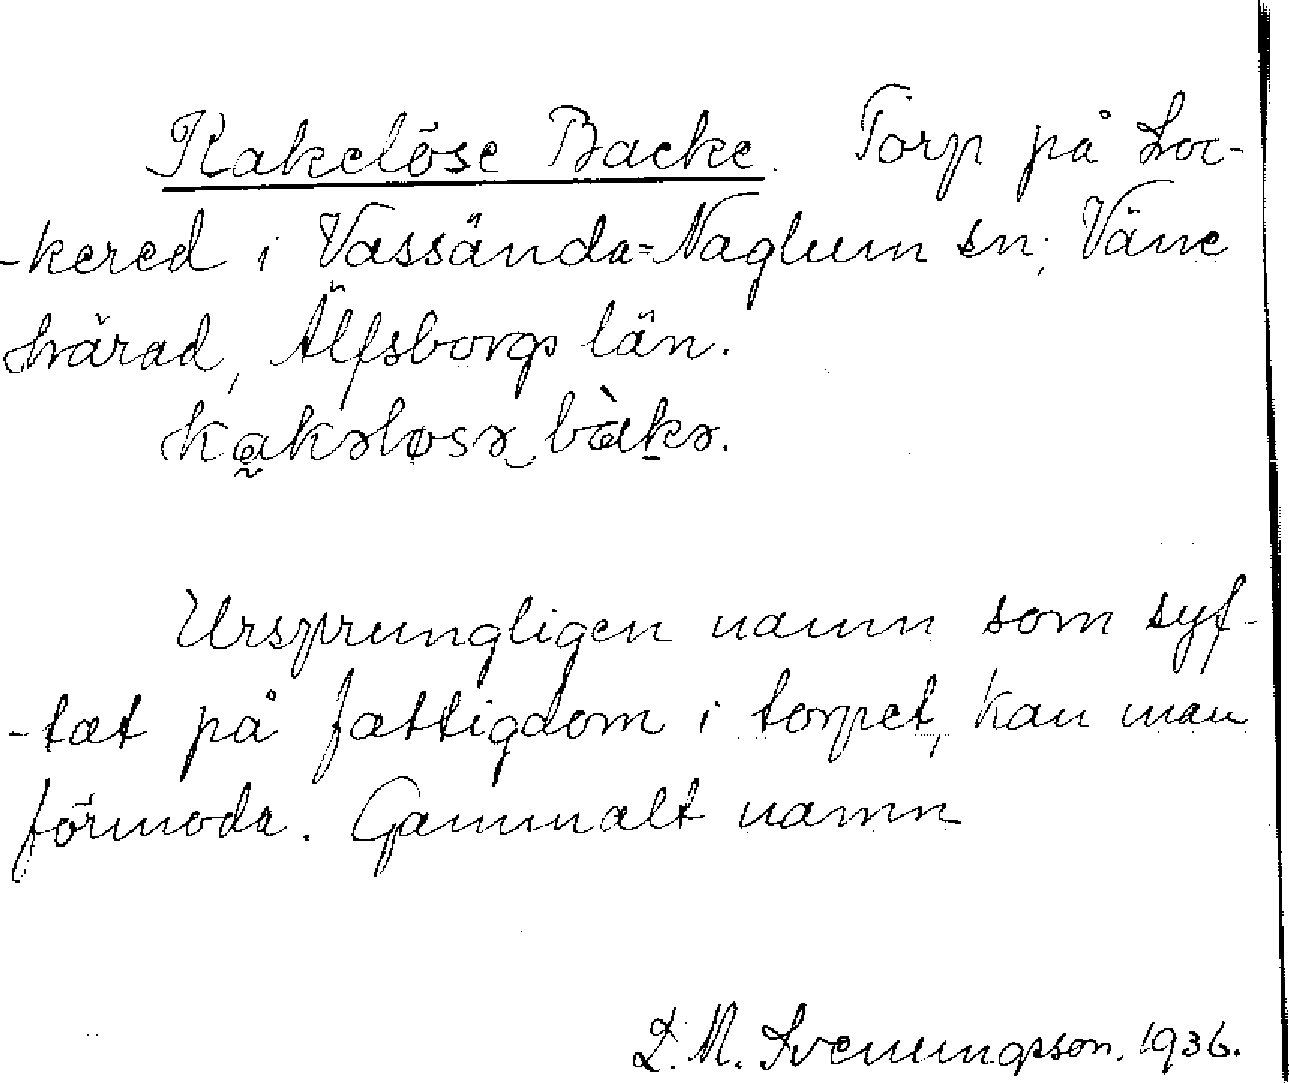 Kakelöse Backe. Torp på Loc-
-kered i Vassända=Naglum sn, Väne
härad, Älfsborgs län.
ka̰kəløsə‿bàk̠ə.
Ursprungligen namn som syf-
-tat på fattigdom i torpet, kan man
förmoda. Gammalt namn
L. M. Svenungsson. 1936.